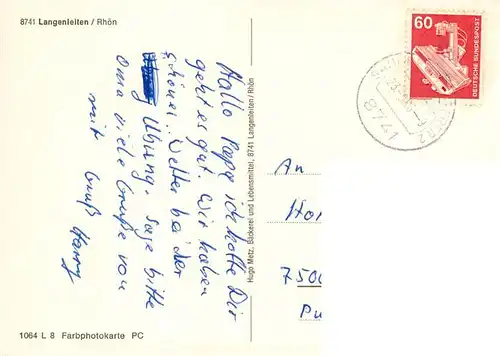 8741 Langenleiten / Rhön
Hallo Papa ich hoffe Dir
geht es gut. Wir haben
schönes Wetter bei der
Übung. Sage bitte
Oma viele Grüße von
mir
Gruß Harry
Hugo Metz, Bäckerei und Lebensmittel, 8741 Langenleiten / Rhön
1064 L 8 Farbphotokarte PC
60
DEUTSCHE BUNDESPOST
8741
An
Ho
7500